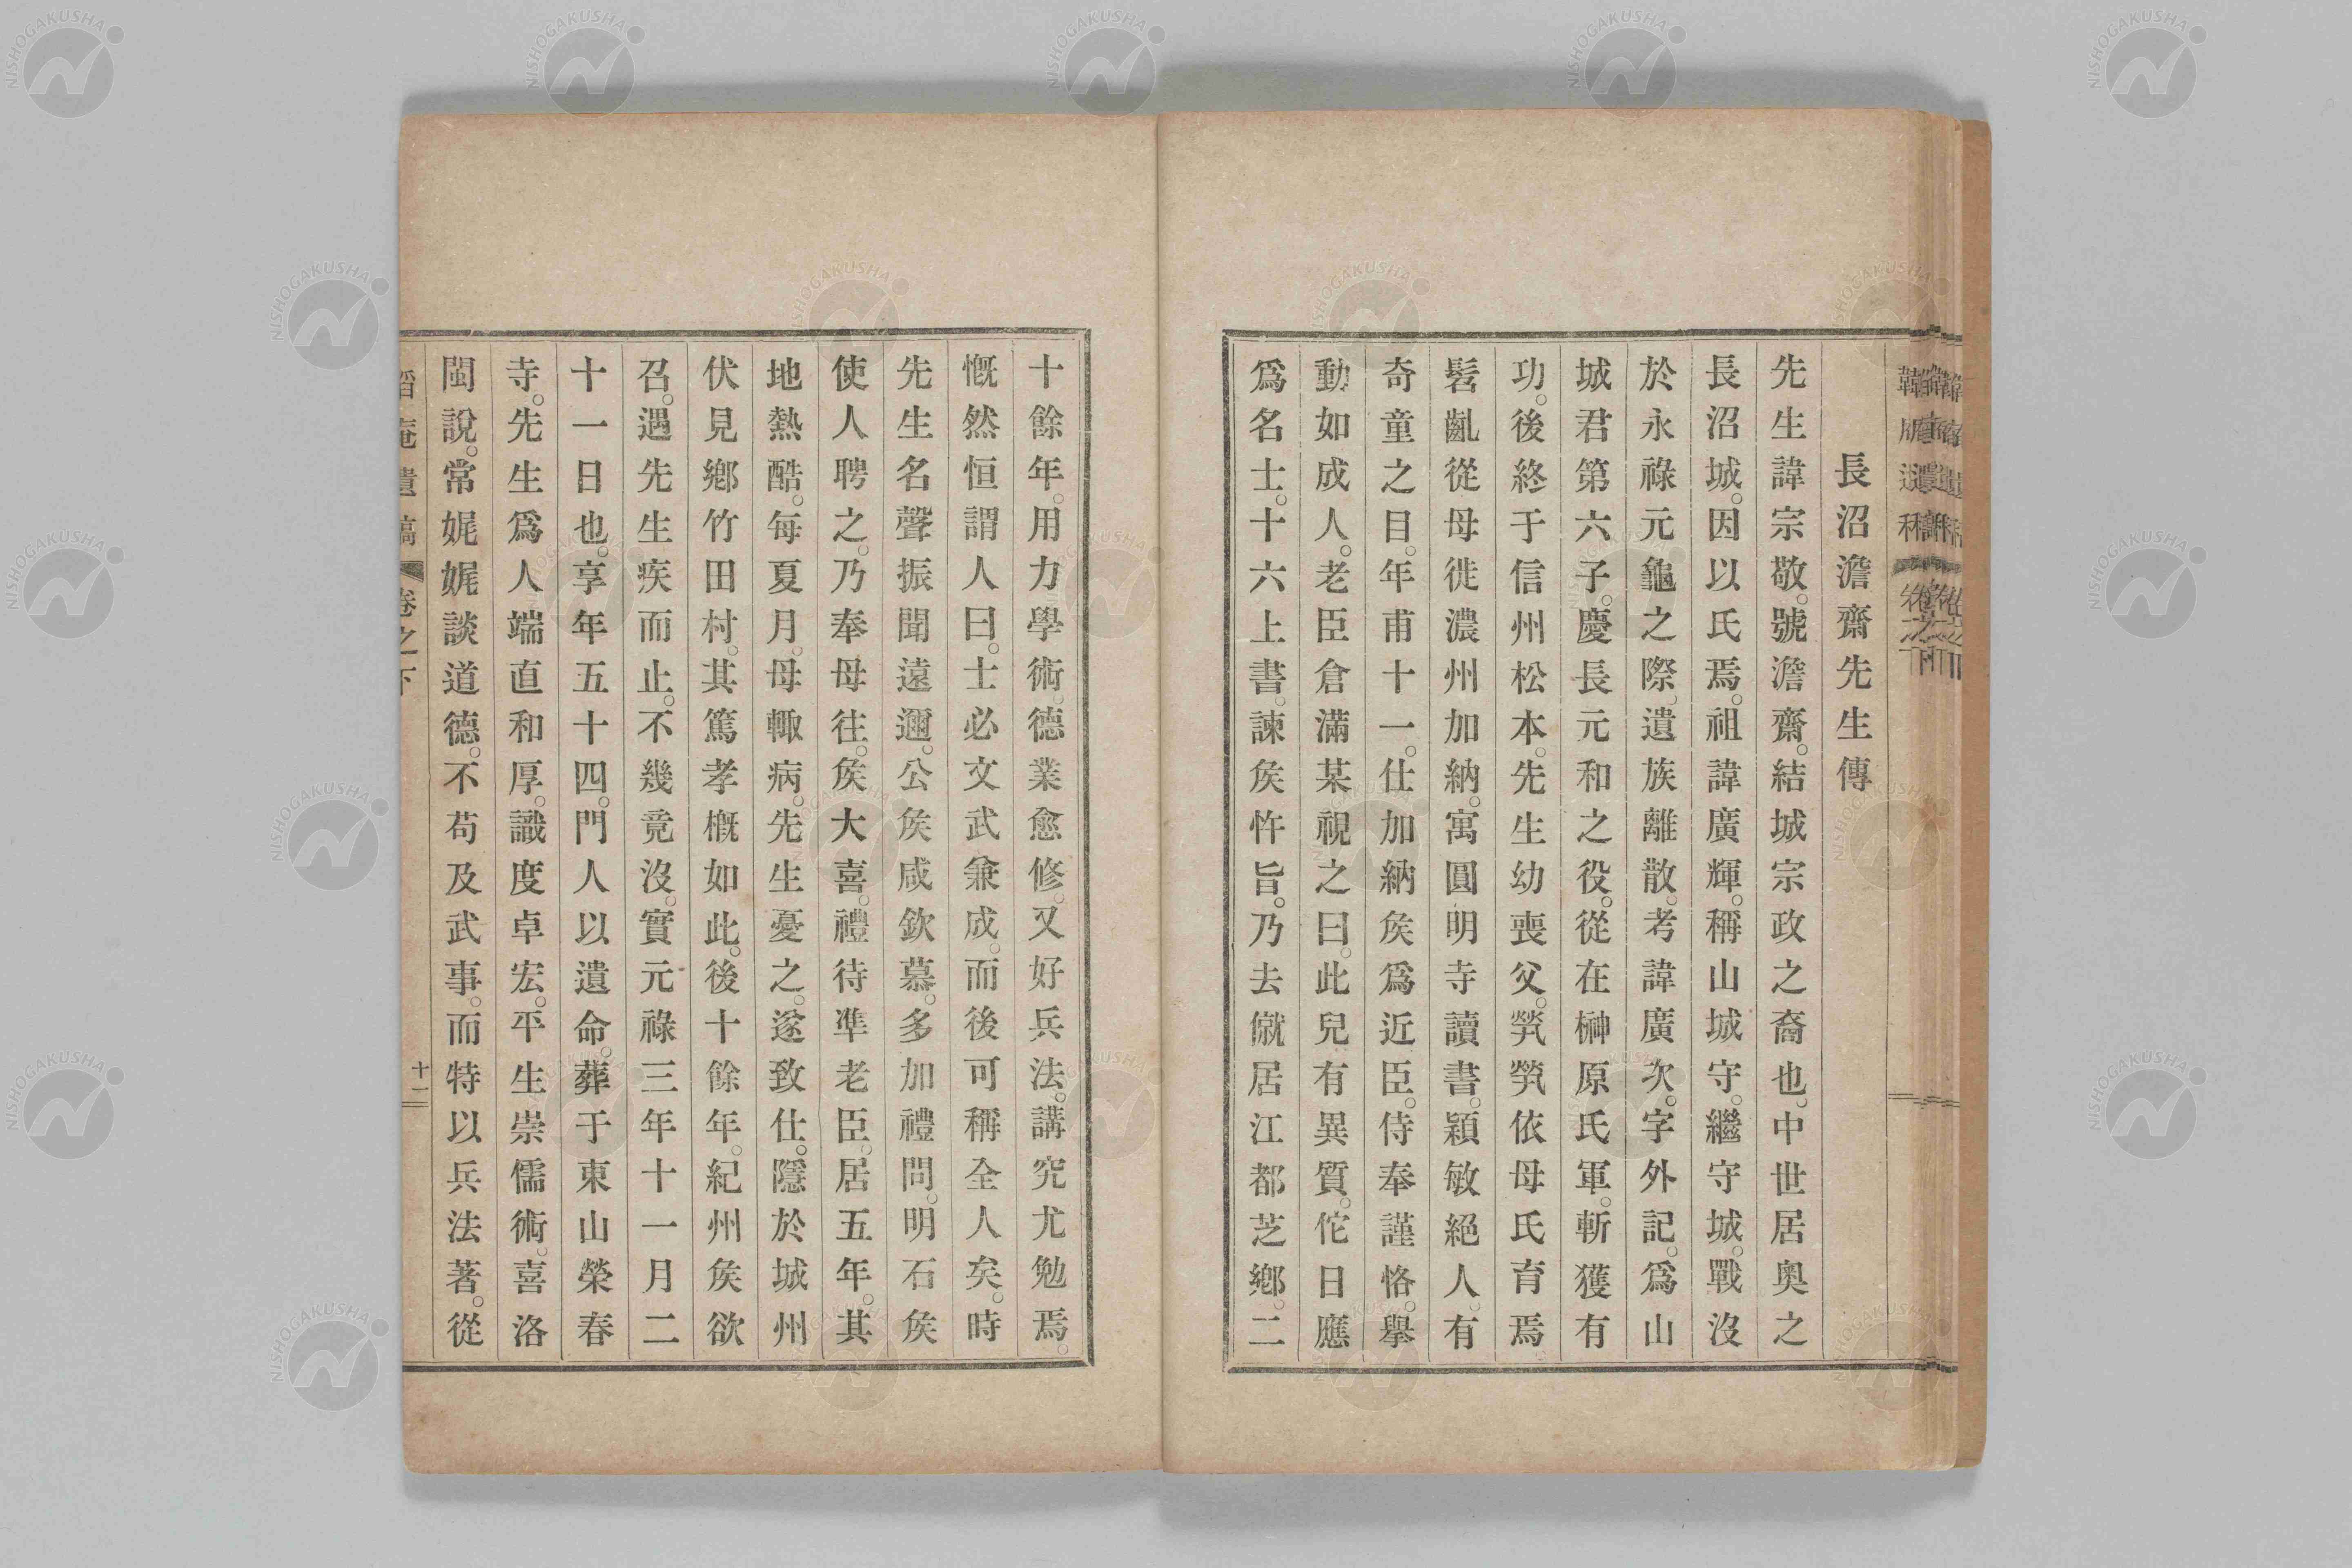 長沼澹齋先生傳
先生諱宗敬。號澹齋。結城宗政之裔也。中世居奧之
長沼城。因以氏焉。祖諱廣輝。稱山城守。繼守城。戰沒
於永祿元龜之際。遺族離散。考諱廣次。字外記。爲山
城君第六子。慶長元和之役。從在榊原氏軍。斬獲有
功。後終于信州松本。先生幼喪父。煢煢依母氏育焉
髫齔從母徙濃州加納。寓圓明寺讀書。穎敏絕人。有
奇童之目。年甫十一。仕加納矦爲近臣。侍奉謹恪。擧
動如成人。老臣倉滿某視之曰。此兒有異質。佗日應
爲名士。十六上書。諫矦忤旨。乃去僦居江都芝鄉。二
十餘年。用力學術。德業愈修。又好兵法。講究尤勉焉。
慨然恒謂人曰。士必文武兼成。而後可稱全人矣。時
先生名聲振聞遠邇。公矦咸欽慕。多加禮問。明石矦
使人聘之。乃奉母往。矦大喜。禮待準老臣。居五年。其
地熱酷。每夏月。母輙病。先生憂之。遂致仕。隱於城州
伏見鄉竹田村。其篤孝槪如此。後十餘年。紀州矦欲
召。遇先生疾而止。不幾竟沒。實元祿三年十一月二
十一日也。享年五十四。門人以遺命。葬于東山榮春
寺。先生爲人端直和厚。識度卓宏。平生崇儒術。喜洛
閩說。常娓娓談道德。不苟及武事。而特以兵法著。從
庵遺稿 卷之下
十二
NISHOGAKUSHA